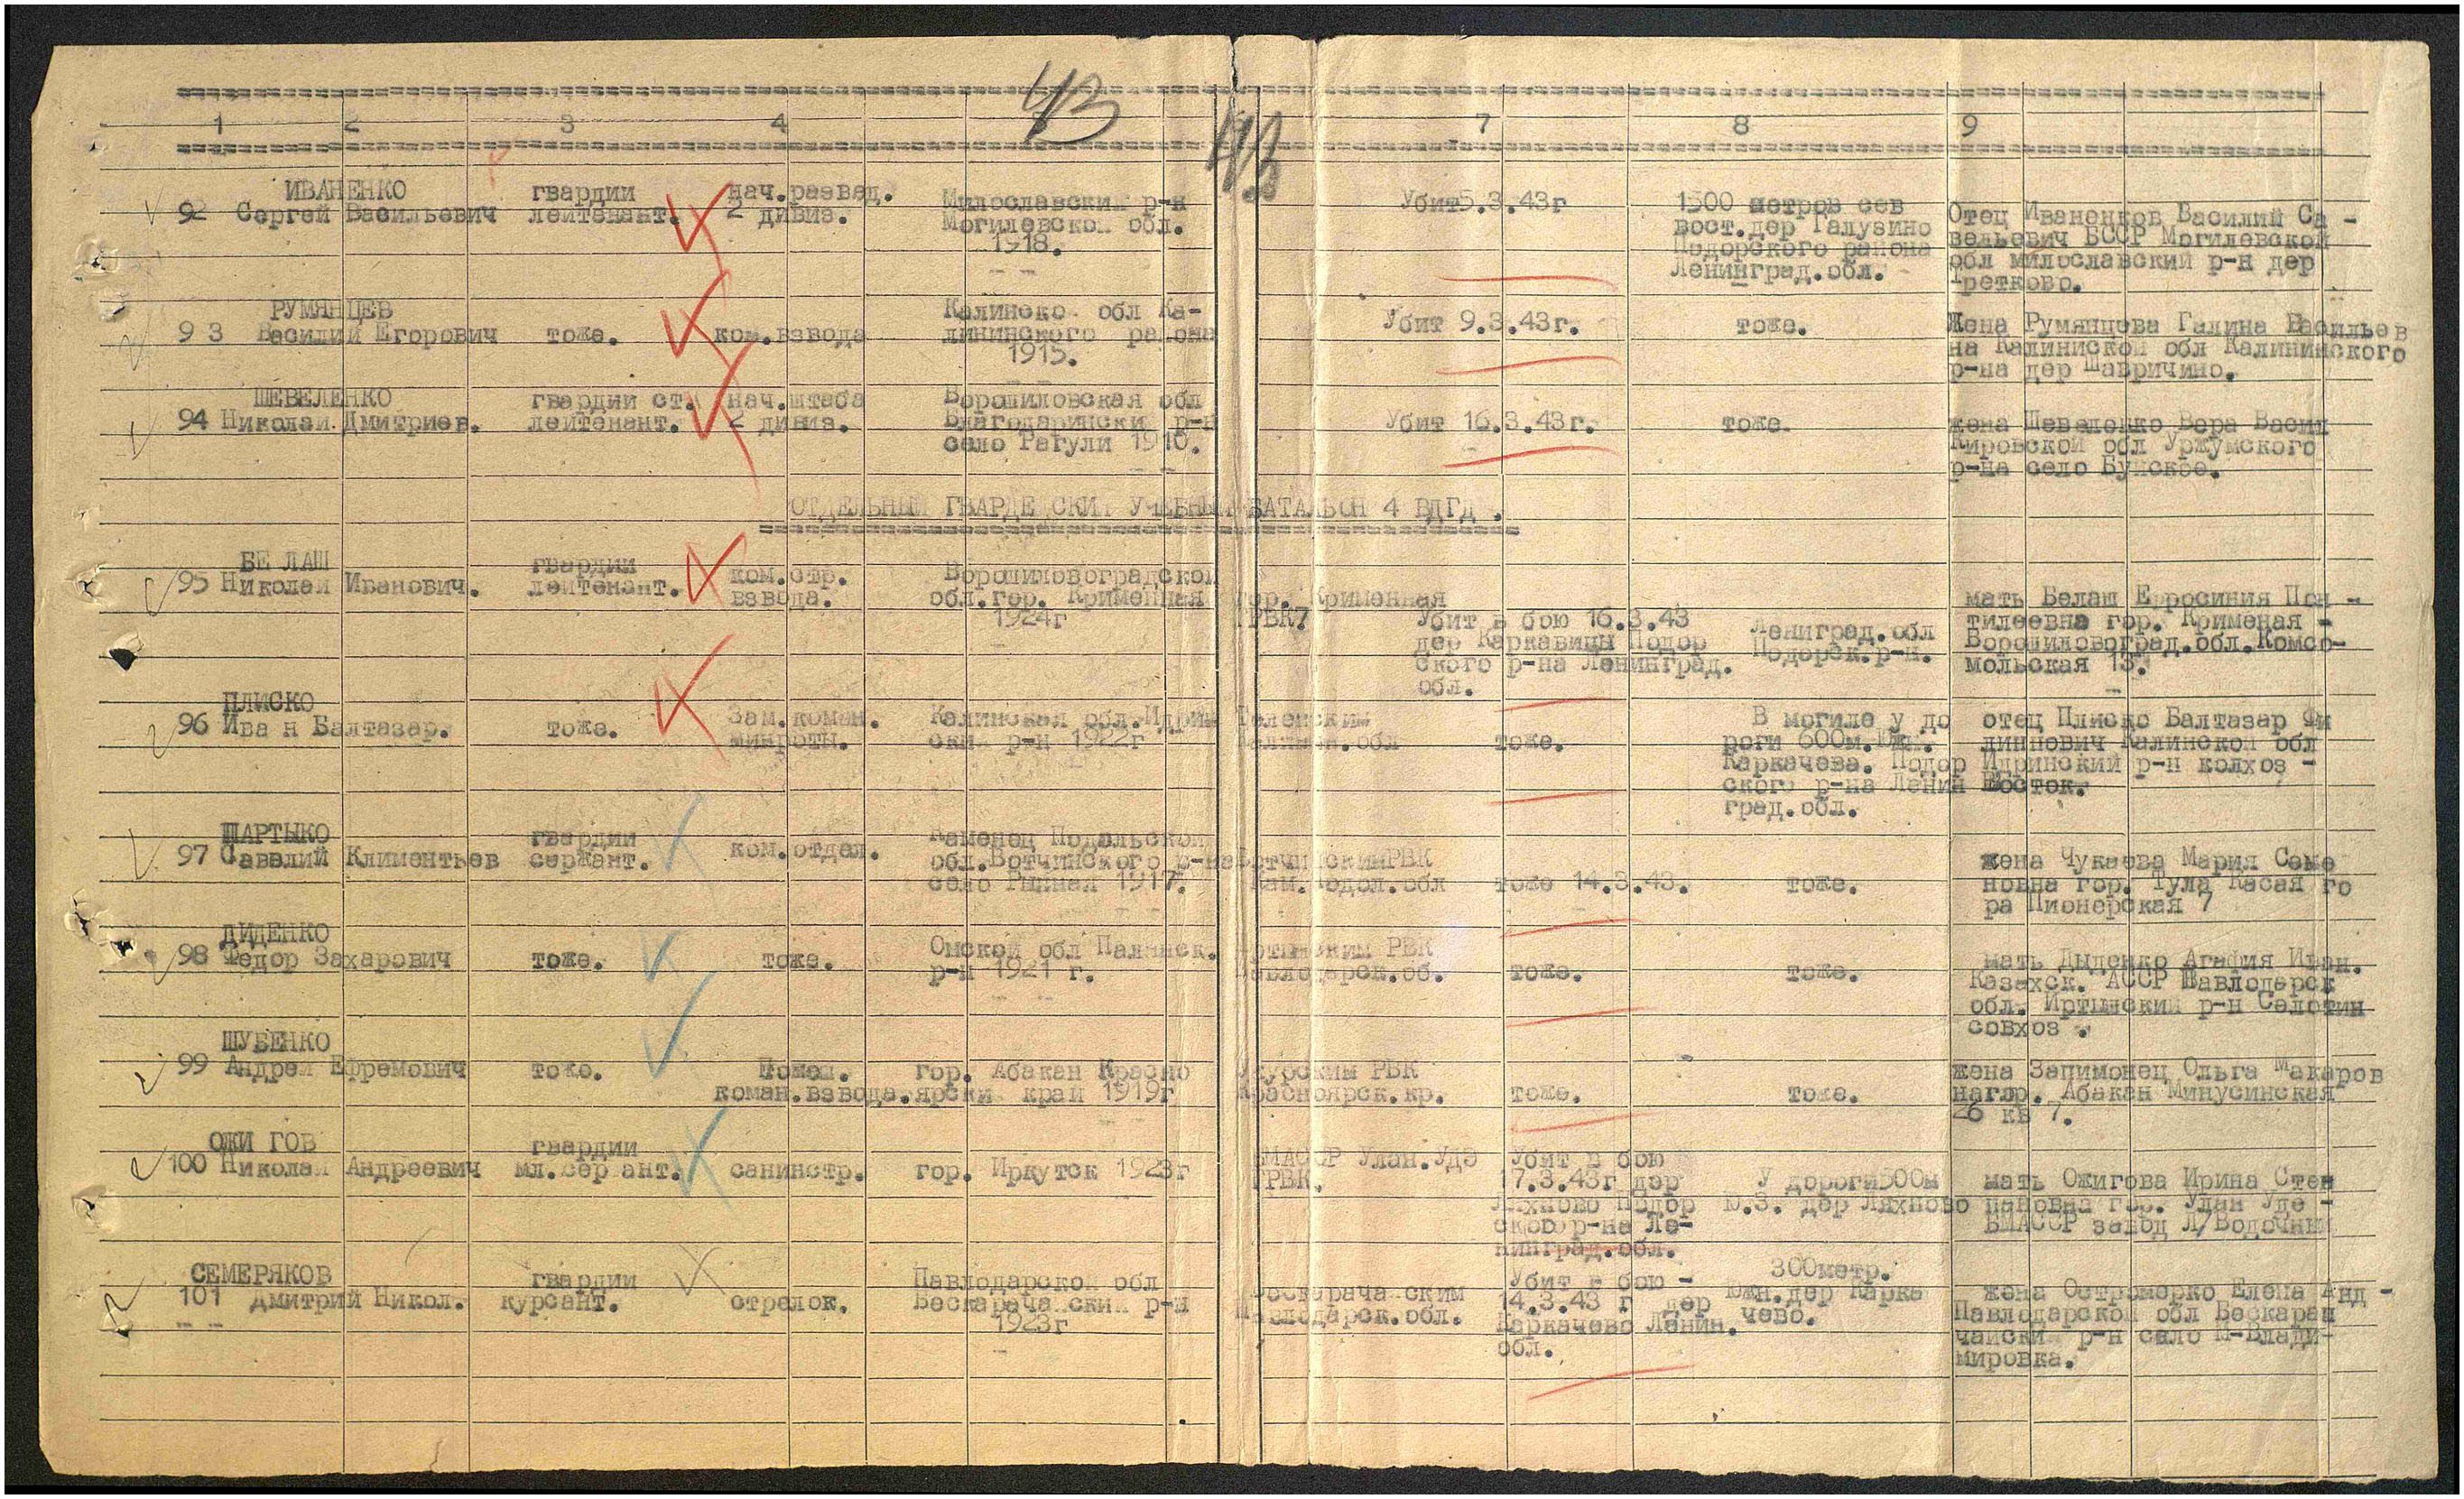 43
43
1 2 3 4 7 8 9
ИВАНЕНКО гвардии нач.развед. Милославский р-н Убит5.3.43г 1500 метров сев Отец Иваненков Василий Са -
92 Сергей Васильевич лейтенант. 2 дивиз. Могилевской обл. вост.дер Галузино вельевич БССР Могилевской
1918. Подорского района обл милославский р-н дер
Ленинград.обл.
РУМЯНЦЕВ Калинско обл Ка-
93 Василий Егорович тоже. ком.взвода лининского района Убит 9.3.43г. тоже. Жена Румянцова Галина Васильев
1915. на Калиниской обл Калининского
р-на дер Шавричино.
ШЕВЕЛЕНКО гвардии ст. нач.штаба Ворошиловская обл
94 Николай Дмитриев. лейтенант. 2 дивиз. Благодарински р-н Убит 16.3.43г. тоже. жена Шевеленко Вера Васил
село Рагули 1910. Кировской обл Уржумского
р-на село Буйское.
ОТДЕЛЬНЫЙ ГВАРДЕЙСКИЙ УЧЕБНЫЙ БАТАЛЬОН 4 ВДГД.
БЕЛАШ гвардии ком.стр. Ворошиловоградской
95 Николай Иванович. лейтенант. взвода. обл.гор. Крименная гор. Крименная мать Белаш Ефросиния Пон -
1924г ГРВК? Убит в бою 16.3.43 Лениград.обл тилеевна гор. Крименая -
дер Каркавицы Подор Подорск.р-н. Ворошиловоград.обл.Комсо-
ского р-на Ленинград. мольская 13.
обл.
ПЛИСКО Зам.коман. Калинская обл.Идрин В могиле у до отец Плиско Балтазар Фи
96 Иван Балтазар. тоже. минроты. ский р-н 1922г Калинин.обл тоже. роги 600м.Южн. липпович Калинской обл
Каркачева. Подор Идринский р-н колхоз -
ского р-на Ленин Восток.
град.обл.
ШАРТЫКО гвардии Каменец Подольской
97 Савелий Климентьев сержант. ком.отдел. обл.Вотчинского р-на Вотчинским РВК жена Чукаева Мария Семе
1917. Кам.Подол.обл тоже 14.3.43. тоже. новна гор. Тула Касая Го
ра Пионерская 7
ДИДЕНКО Омской обл
98 Федор Захарович тоже. тоже. р-н 1921 г. Иртышским РВК мать Дыденко Агафия Иван.
Павлодарск.об. тоже. тоже. Казахск. АССР Павлодарск
обл. Иртышский р-н
совхоз.
ШУБЕНКО
99 Андрей Ефремович тоже. Помощ. гор. Абакан Красно РВК жена Запимонец Ольга Макаров
коман.взвода. ярский край 1919г Красноярск.кр. тоже. тоже. нагор. Абакан Минусинская
26 кв 7.
ОЖИГОВ гвардии БМАССР Улан.Удэ Убит в бою
100 Николай Андреевич мл.сержант. санинстр. гор. Иркутск 1923г ГРВК. 17.3.43г дер У дороги500м мать Ожигова Ирина Стен
Ляхново Подор Ю.З. дер Ляхново пановна гор. Улан Уде -
ского р-на Ле- БМАССР завод Л/Водочный
нинград.обл.
СЕМЕРЯКОВ гвардии Павлодарской обл Убит в бою - 300метр.
101 Дмитрий Никол. курсант. стрелок. Бескарагайский р-н 14.3.43 г дер Южн.дер Карка жена Остроморко Елена Анд -
1923г Павлодарск.обл. Каркачево Ленин. чево. Павлодарской обл Бескараг
обл. чайский р-н село М-Влади-
мировка.